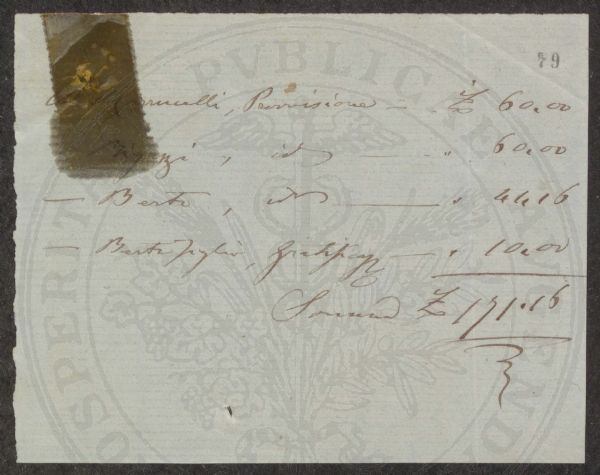 79
PVBLICAE
Provvisione — £ 60.00
, id — " 60.00
— Berti, id — " 41.16
— Berti figlio, gratificaz — " 10.00
Somma £ 171.16